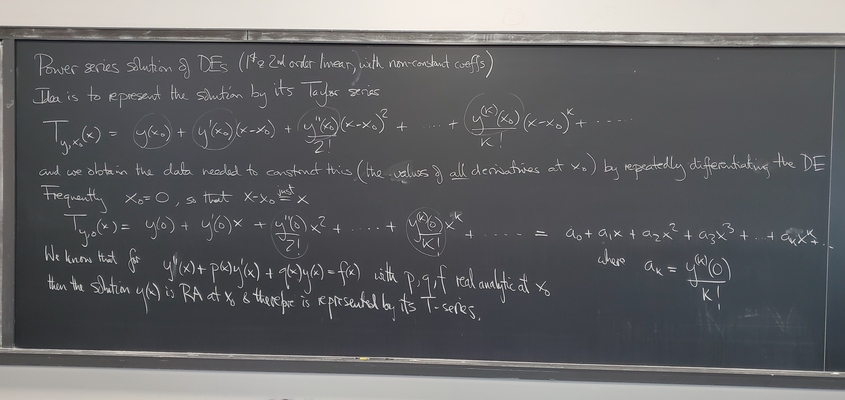 Power series solution of DEs (1st & 2nd order linear, with non-constant coeffs)
Idea is to represent the solution by its Taylor series
T_{y,x₀}(x) = y(x₀) + y'(x₀)(x-x₀) + y''(x₀)/2! (x-x₀)² + ..... + y^{(k)}(x₀)/k! (x-x₀)^k + .....
and we obtain the data needed to construct this (the values of all derivatives at x₀) by repeatedly differentiating the DE
Frequently x₀=0, so that x-x₀ = just x
T_{y,0}(x) = y(0) + y'(0)x + y''(0)/2! x² + ..... + y^{(k)}(0)/k! x^k + ...... = a₀ + a₁x + a₂x² + a₃x³ + ... + a_k x^k + ...
where a_k = y^{(k)}(0)/k!
We know that for y''(x) + p(x)y'(x) + q(x)y(x) = f(x) with p, q, f real analytic at x₀
then the solution y(x) is RA at x₀ & therefore is represented by its T-series.